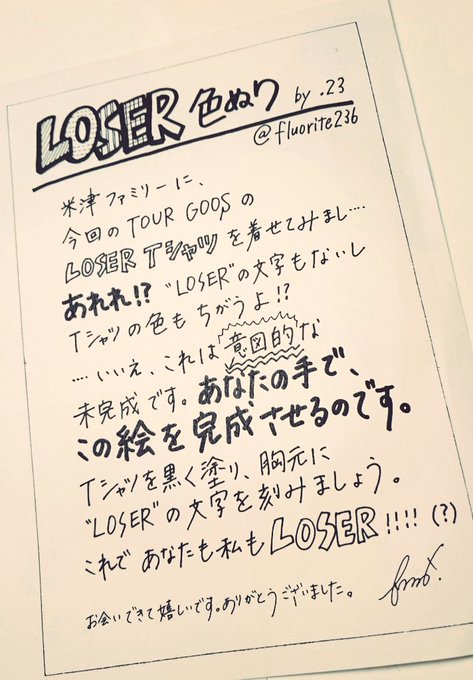 LOSER 色ぬり by .23
@fluorite236
米津ファミリーに、
今回のTOUR GOODSの
LOSER Tシャツを着せてみまし‥‥
あれれ!? "LOSER"の文字もないし
Tシャツの色もちがうよ!?
‥‥いいえ、これは意図的な
未完成です。あなたの手で、
この絵を完成させるのです。
Tシャツを黒く塗り、胸元に
"LOSER"の文字を刻みましょう。
これであなたも私もLOSER!!!! (?)
お会いできて嬉しいです。ありがとうございました。